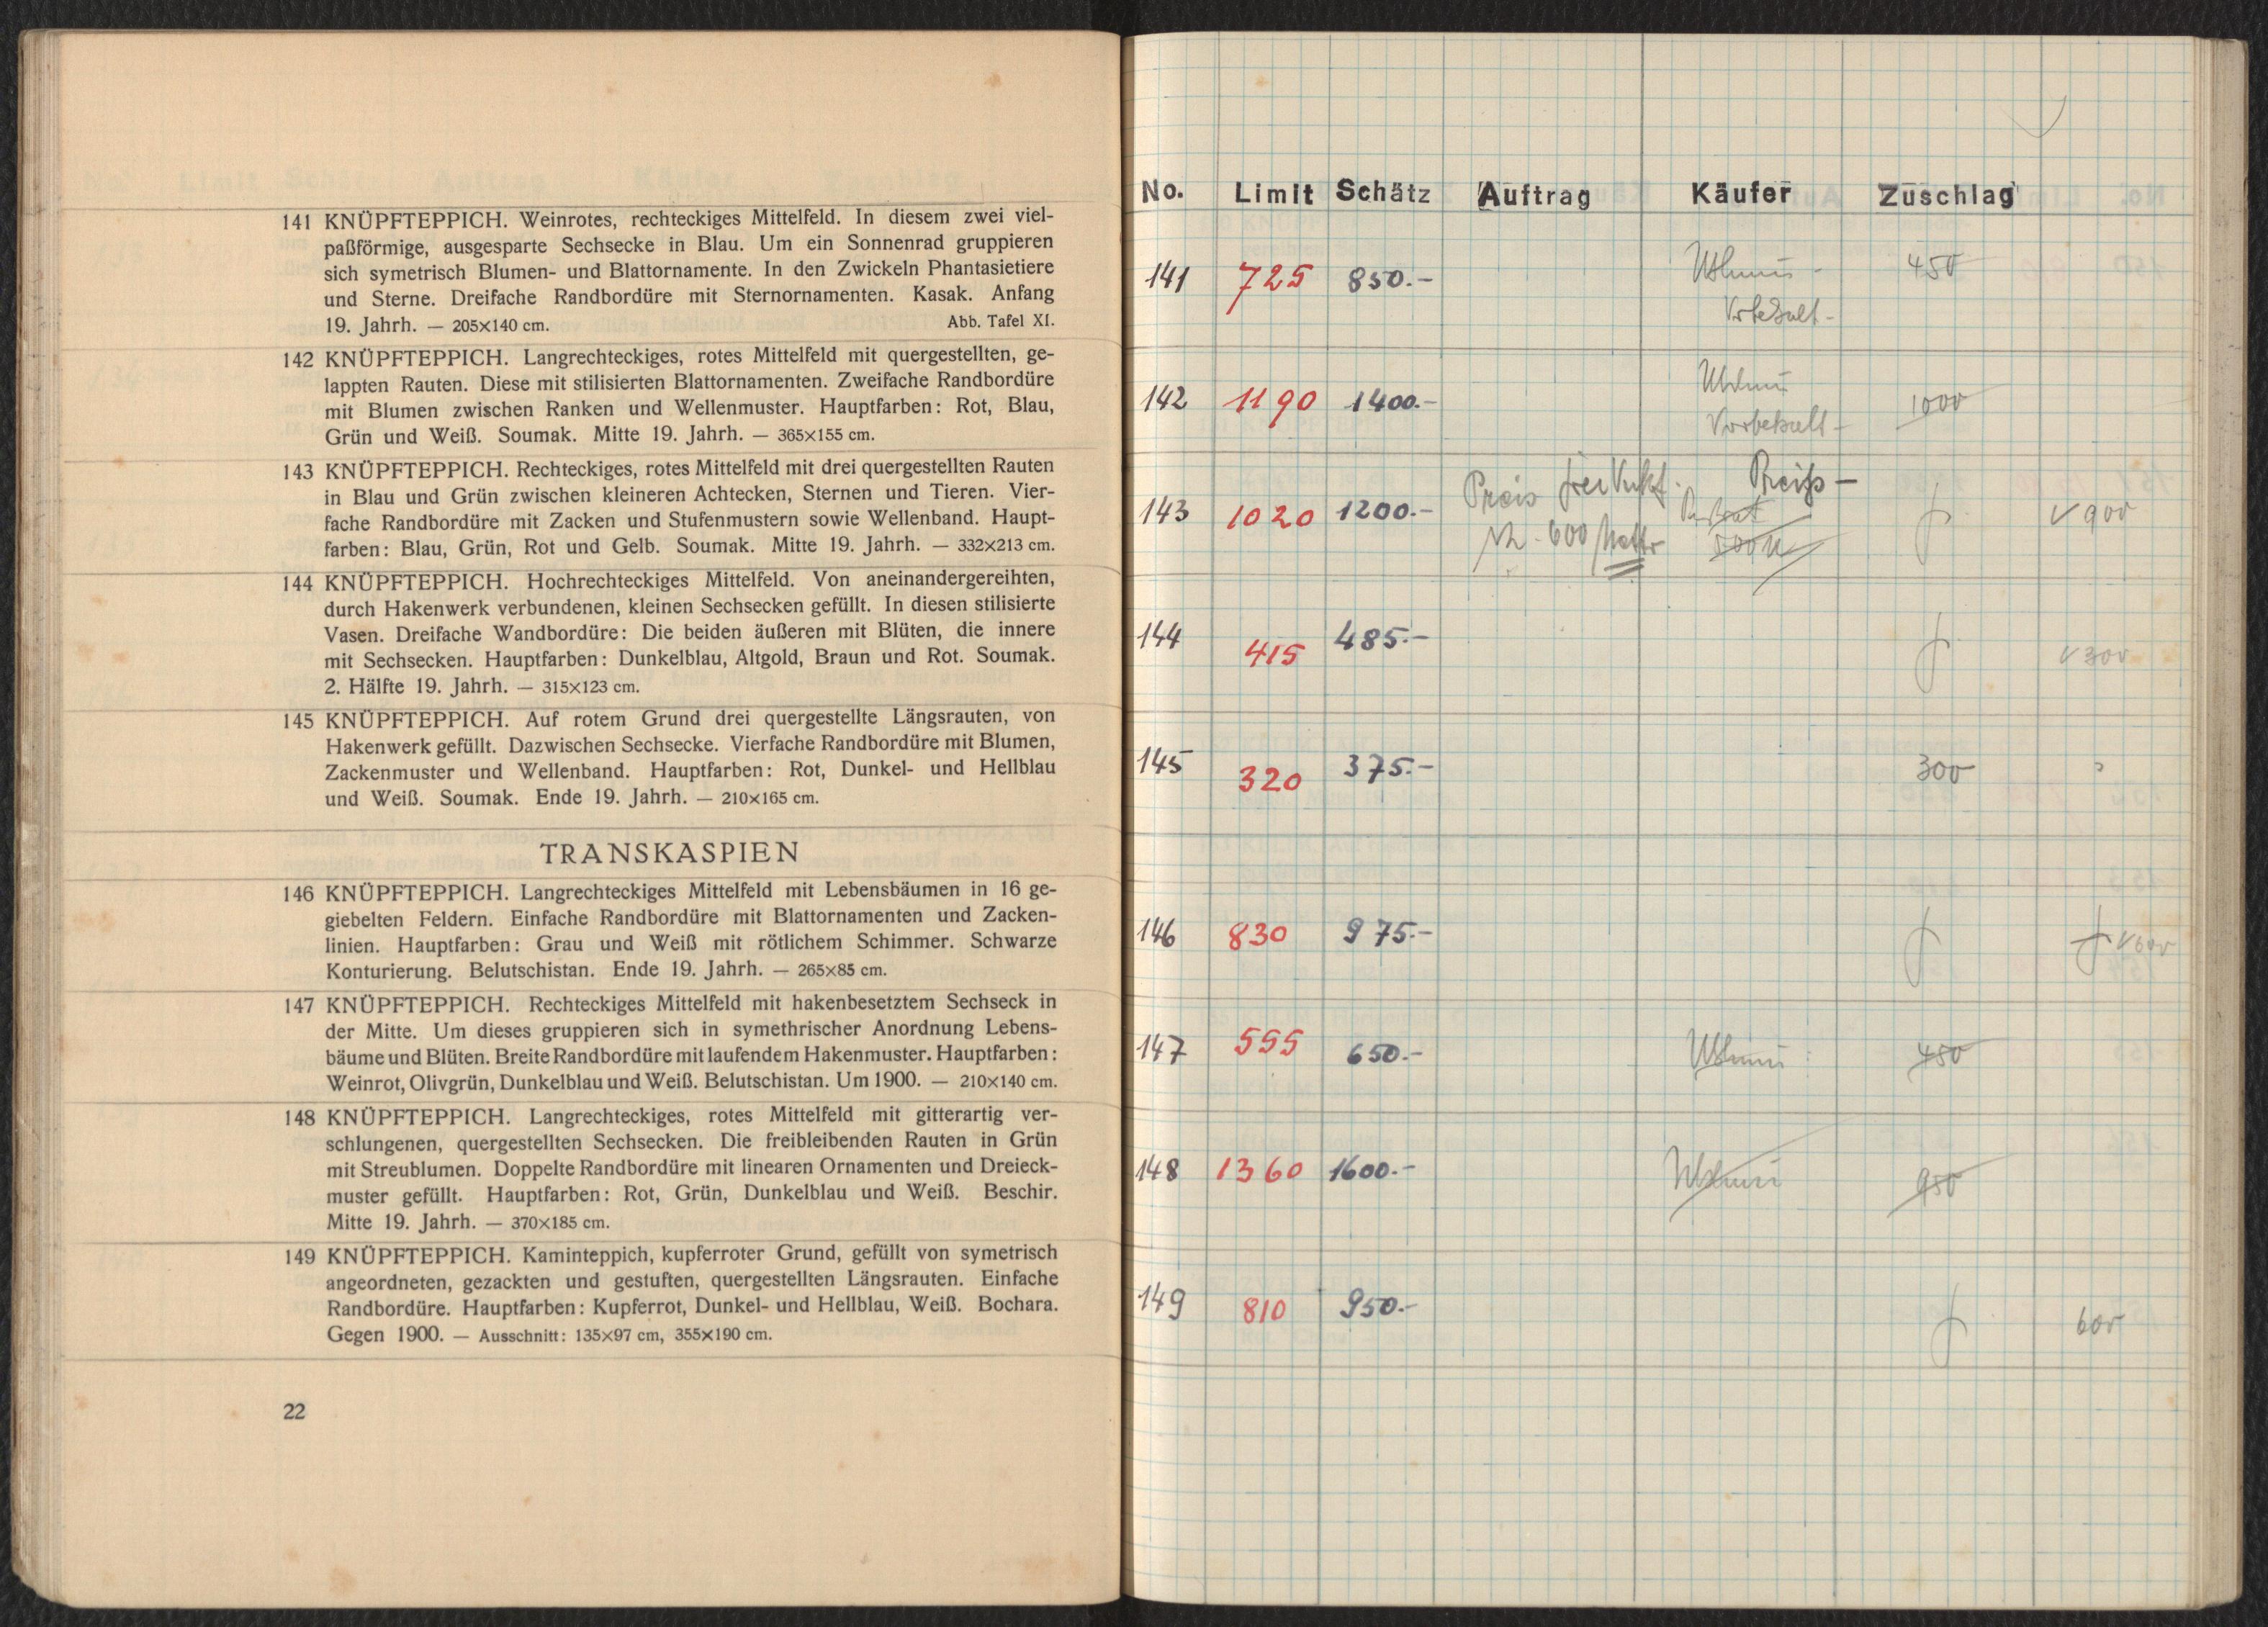 141 KNÜPFTEPPICH. Weinrotes, rechteckiges Mittelfeld. In diesem zwei viel-
paßförmige, ausgesparte Sechsecke in Blau. Um ein Sonnenrad gruppieren
sich symetrisch Blumen- und Blattornamente. In den Zwickeln Phantasietiere
und Sterne. Dreifache Randbordüre mit Sternornamenten. Kasak. Anfang
19. Jahrh. — 205×140 cm. Abb. Tafel XI.
142 KNÜPFTEPPICH. Langrechteckiges, rotes Mittelfeld mit quergestellten, ge-
lappten Rauten. Diese mit stilisierten Blattornamenten. Zweifache Randbordüre
mit Blumen zwischen Ranken und Wellenmuster. Hauptfarben: Rot, Blau,
Grün und Weiß. Soumak. Mitte 19. Jahrh. — 365×155 cm.
143 KNÜPFTEPPICH. Rechteckiges, rotes Mittelfeld mit drei quergestellten Rauten
in Blau und Grün zwischen kleineren Achtecken, Sternen und Tieren. Vier-
fache Randbordüre mit Zacken und Stufenmustern sowie Wellenband. Haupt-
farben: Blau, Grün, Rot und Gelb. Soumak. Mitte 19. Jahrh. — 332×213 cm.
144 KNÜPFTEPPICH. Hochrechteckiges Mittelfeld. Von aneinandergereihten,
durch Hakenwerk verbundenen, kleinen Sechsecken gefüllt. In diesen stilisierte
Vasen. Dreifache Wandbordüre: Die beiden äußeren mit Blüten, die innere
mit Sechsecken. Hauptfarben: Dunkelblau, Altgold, Braun und Rot. Soumak.
2. Hälfte 19. Jahrh. — 315×123 cm.
145 KNÜPFTEPPICH. Auf rotem Grund drei quergestellte Längsrauten, von
Hakenwerk gefüllt. Dazwischen Sechsecke. Vierfache Randbordüre mit Blumen,
Zackenmuster und Wellenband. Hauptfarben: Rot, Dunkel- und Hellblau
und Weiß. Soumak. Ende 19. Jahrh. — 210×165 cm.
TRANSKASPIEN
146 KNÜPFTEPPICH. Langrechteckiges Mittelfeld mit Lebensbäumen in 16 ge-
giebelten Feldern. Einfache Randbordüre mit Blattornamenten und Zacken-
linien. Hauptfarben: Grau und Weiß mit rötlichem Schimmer. Schwarze
Konturierung. Belutschistan. Ende 19. Jahrh. — 265×85 cm.
147 KNÜPFTEPPICH. Rechteckiges Mittelfeld mit hakenbesetztem Sechseck in
der Mitte. Um dieses gruppieren sich in symethrischer Anordnung Lebens-
bäume und Blüten. Breite Randbordüre mit laufendem Hakenmuster. Hauptfarben:
Weinrot, Olivgrün, Dunkelblau und Weiß. Belutschistan. Um 1900. — 210×140 cm.
148 KNÜPFTEPPICH. Langrechteckiges, rotes Mittelfeld mit gitterartig ver-
schlungenen, quergestellten Sechsecken. Die freibleibenden Rauten in Grün
mit Streublumen. Doppelte Randbordüre mit linearen Ornamenten und Dreieck-
muster gefüllt. Hauptfarben: Rot, Grün, Dunkelblau und Weiß. Beschir.
Mitte 19. Jahrh. — 370×185 cm.
149 KNÜPFTEPPICH. Kaminteppich, kupferroter Grund, gefüllt von symetrisch
angeordneten, gezackten und gestuften, quergestellten Längsrauten. Einfache
Randbordüre. Hauptfarben: Kupferrot, Dunkel- und Hellblau, Weiß. Bochara.
Gegen 1900. — Ausschnitt: 135×97 cm, 355×190 cm.
22
No. Limit Schätz Auftrag Käufer Zuschlag
141 725 850.- 450
142 1190 1400.- 1000
Vorbehalt-
143 1020 1200.- Preis Preiß- 900
600
144 415 485.- 300
145 320 375.- 300
146 830 975.- 600
147 555 650.- 450
148 1360 1600.- 950
149 810 950.- 600